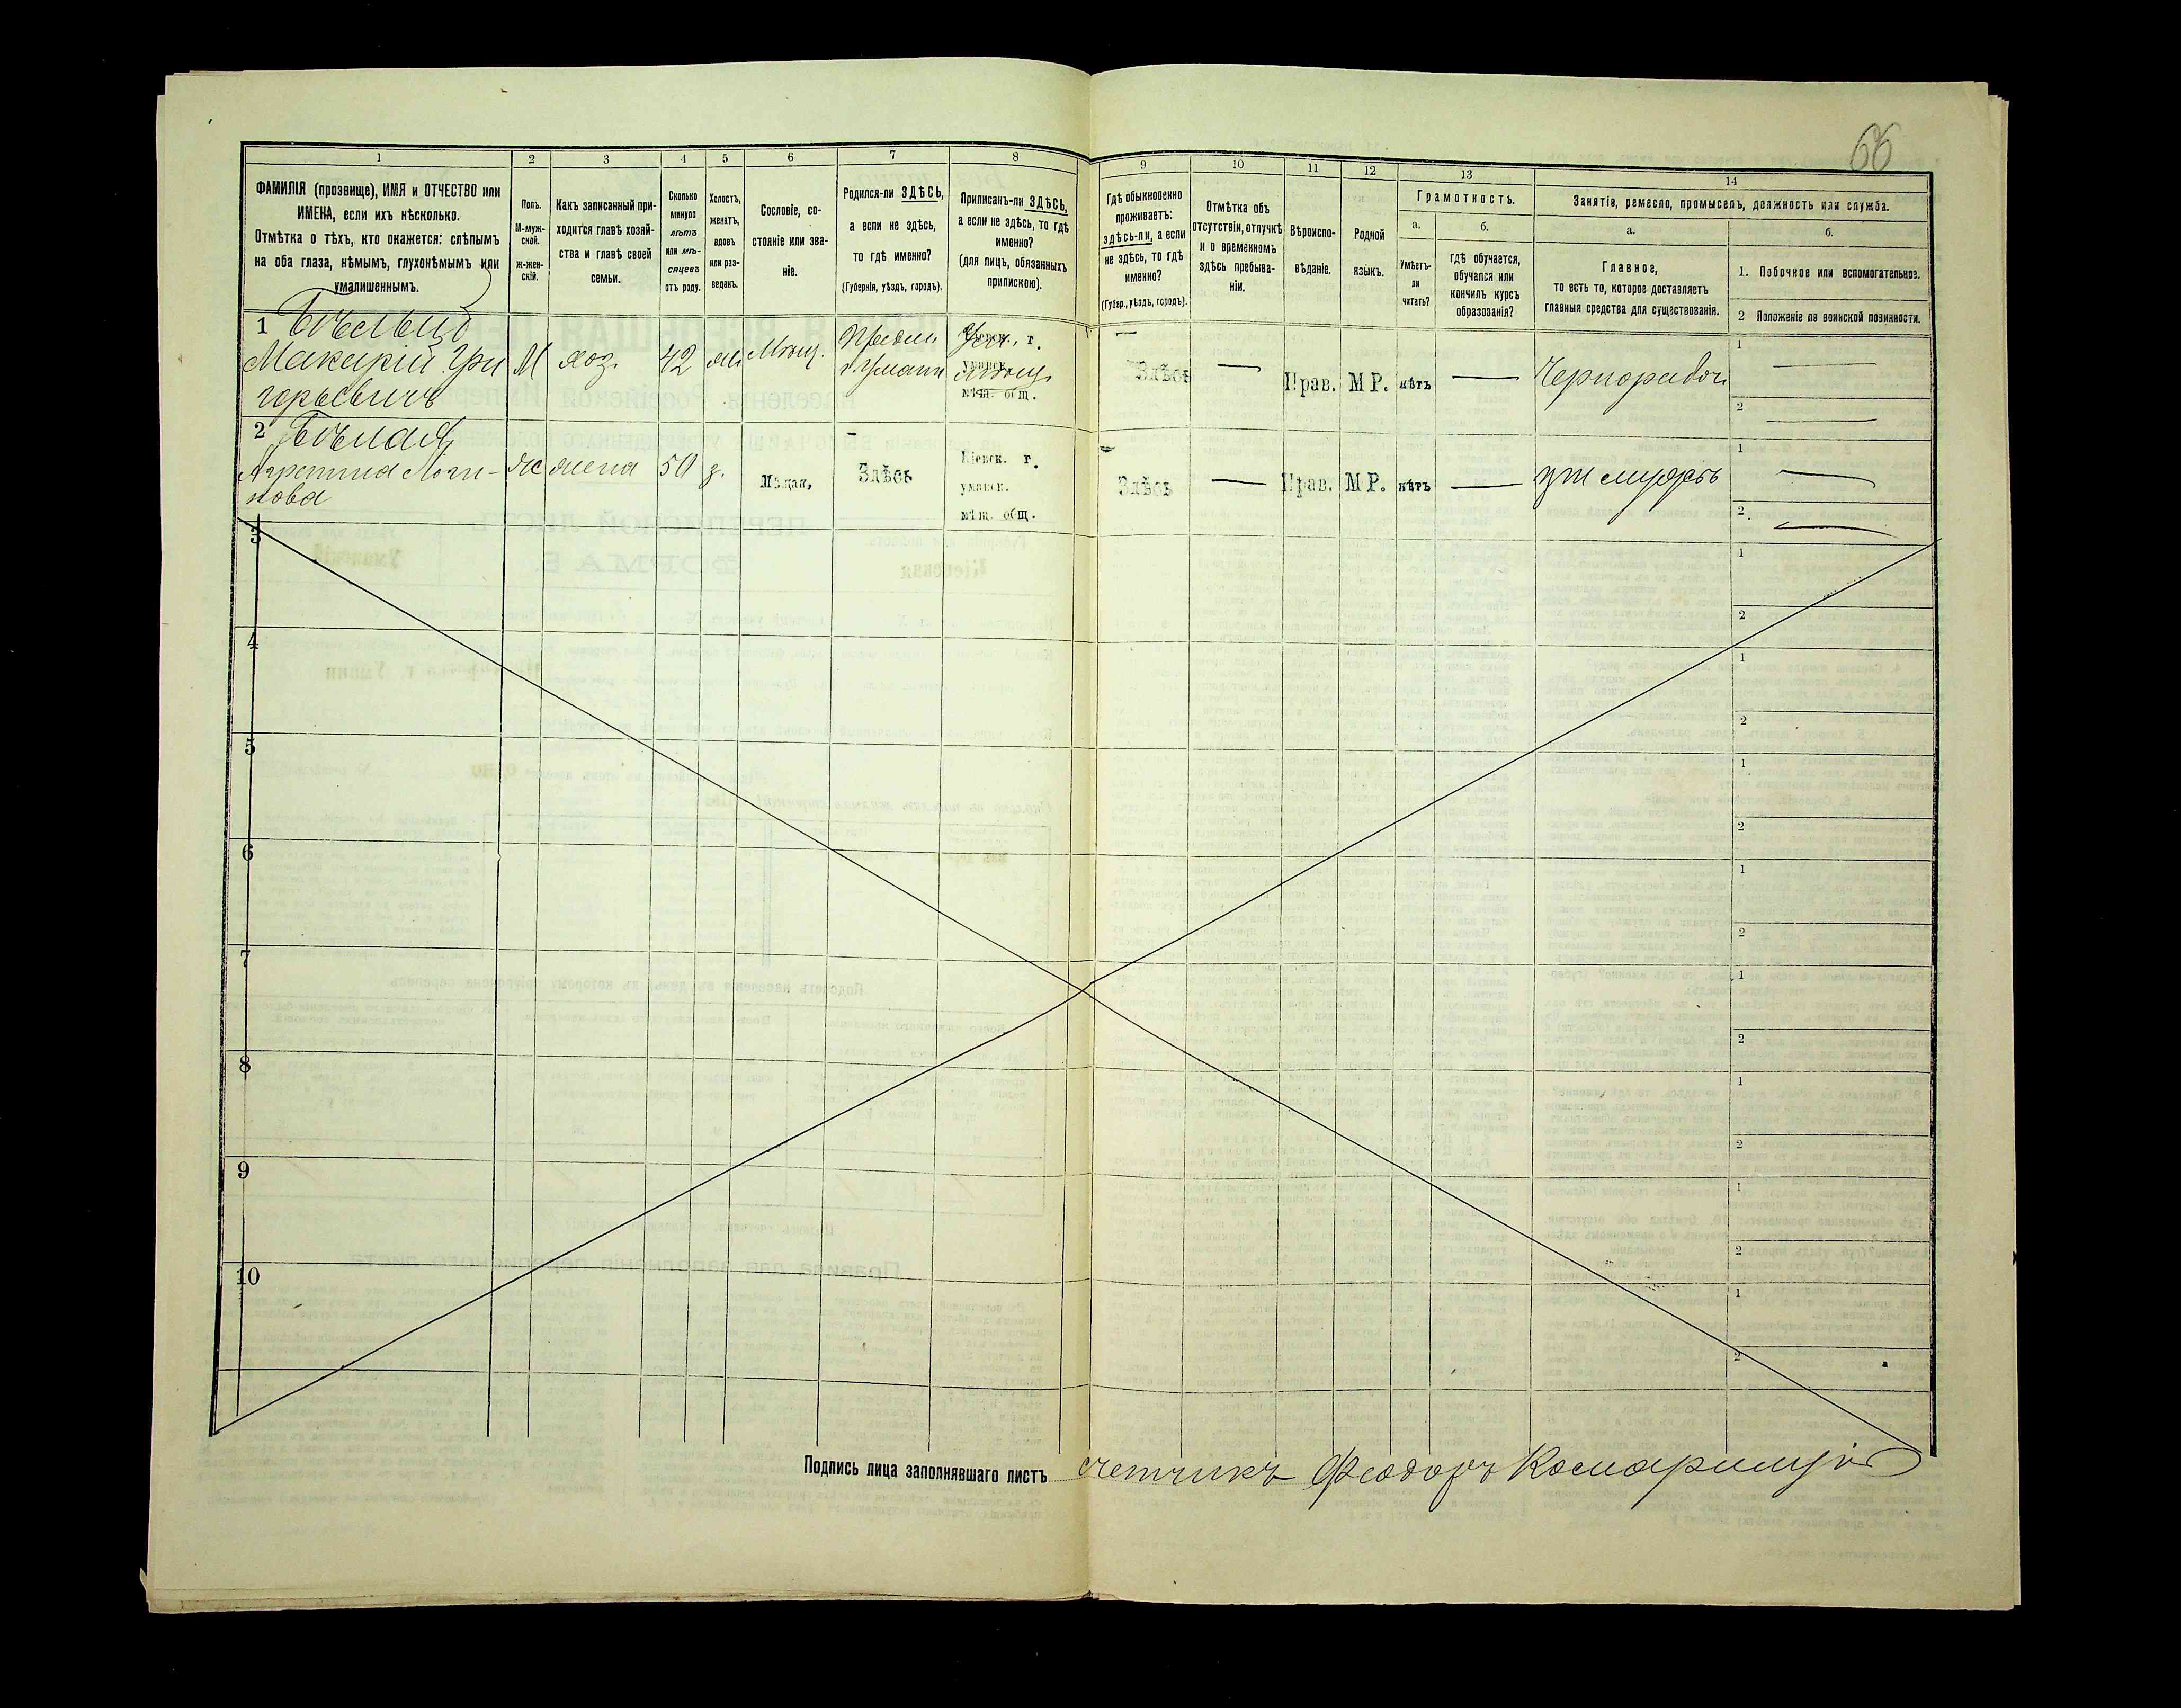 66
1 2 3 4 5 6 7 8 9 10 11 12 13 14
ФАМИЛІЯ (прозвище), ИМЯ и ОТЧЕСТВО или
ИМЕНА, если ихъ нѣсколько.
Отмѣтка о тѣхъ, кто окажется: слѣпымъ
на оба глаза, нѣмымъ, глухонѣмымъ или
умалишеннымъ.
Полъ.
М-муж-
ской.
ж-жен-
скій.
Какъ записанный при-
ходится главѣ хозяй-
ства и главѣ своей
семьи.
Сколько
минуло
лѣтъ
или мѣ-
сяцевъ
отъ роду.
Холостъ,
женатъ,
вдовъ
или раз-
веденъ.
Сословіе, со-
стояніе или зва-
ніе.
Родился-ли ЗДѢСЬ,
а если не здѣсь,
то гдѣ именно?
(Губернія, уѣздъ, городъ).
Приписанъ-ли ЗДѢСЬ,
а если не здѣсь, то гдѣ
именно?
(для лицъ, обязанныхъ
припискою).
Гдѣ обыкновенно
проживаетъ:
здѣсь-ли, а если
не здѣсь, то гдѣ
именно?
(Губер., уѣздъ, городъ).
Отмѣтка объ
отсутствіи, отлучкѣ
и о временномъ
здѣсь пребыва-
ніи.
Вѣроиспо-
вѣданіе.
Родной
языкъ.
Грамотность.
а.
Умѣетъ-
ли
читать?
б.
гдѣ обучается,
обучался или
кончилъ курсъ
образованія?
Занятія, ремесло, промыселъ, должность или служба.
а.
Главное,
то есть то, которое доставляетъ
главныя средства для существованія.
б.
1. Побочное или вспомогательное.
2 Положеніе по воинской повинности.
1
Григорьевичъ
М
хоз.
42
Мѣщ.
Умани
Кіевск. г.
уманск.
мѣщ. общ.
Здѣсь
—
Прав.
МР.
нѣтъ
—
Чернорабоч
1 —
2 —
2 Бѣлая
жена
50
з.
Мѣщан.
Здѣсь
Кіевск. г.
уманск.
мѣщ. общ.
Здѣсь
—
Прав.
МР.
нѣтъ
—
при мужѣ
1 —
2. —
3
1
2
4
1
2
5
1
2
6
1
2
7
1
2
8
1
2
9
1
2
10
1
2
Подпись лица заполнявшаго листъ счетчикъ Феодоръ